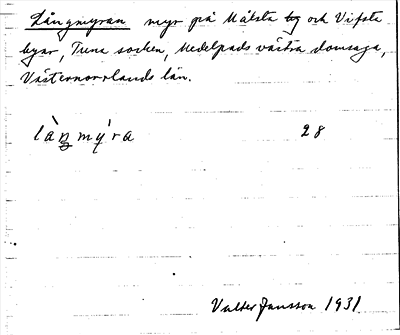 Långmyran myr på Målsta by och Vifsta
byar, Tuna socken, Medelpads västra domsaga,
Västernorrlands län.
làŋmy̍ra 28
Valter Jansson 1931